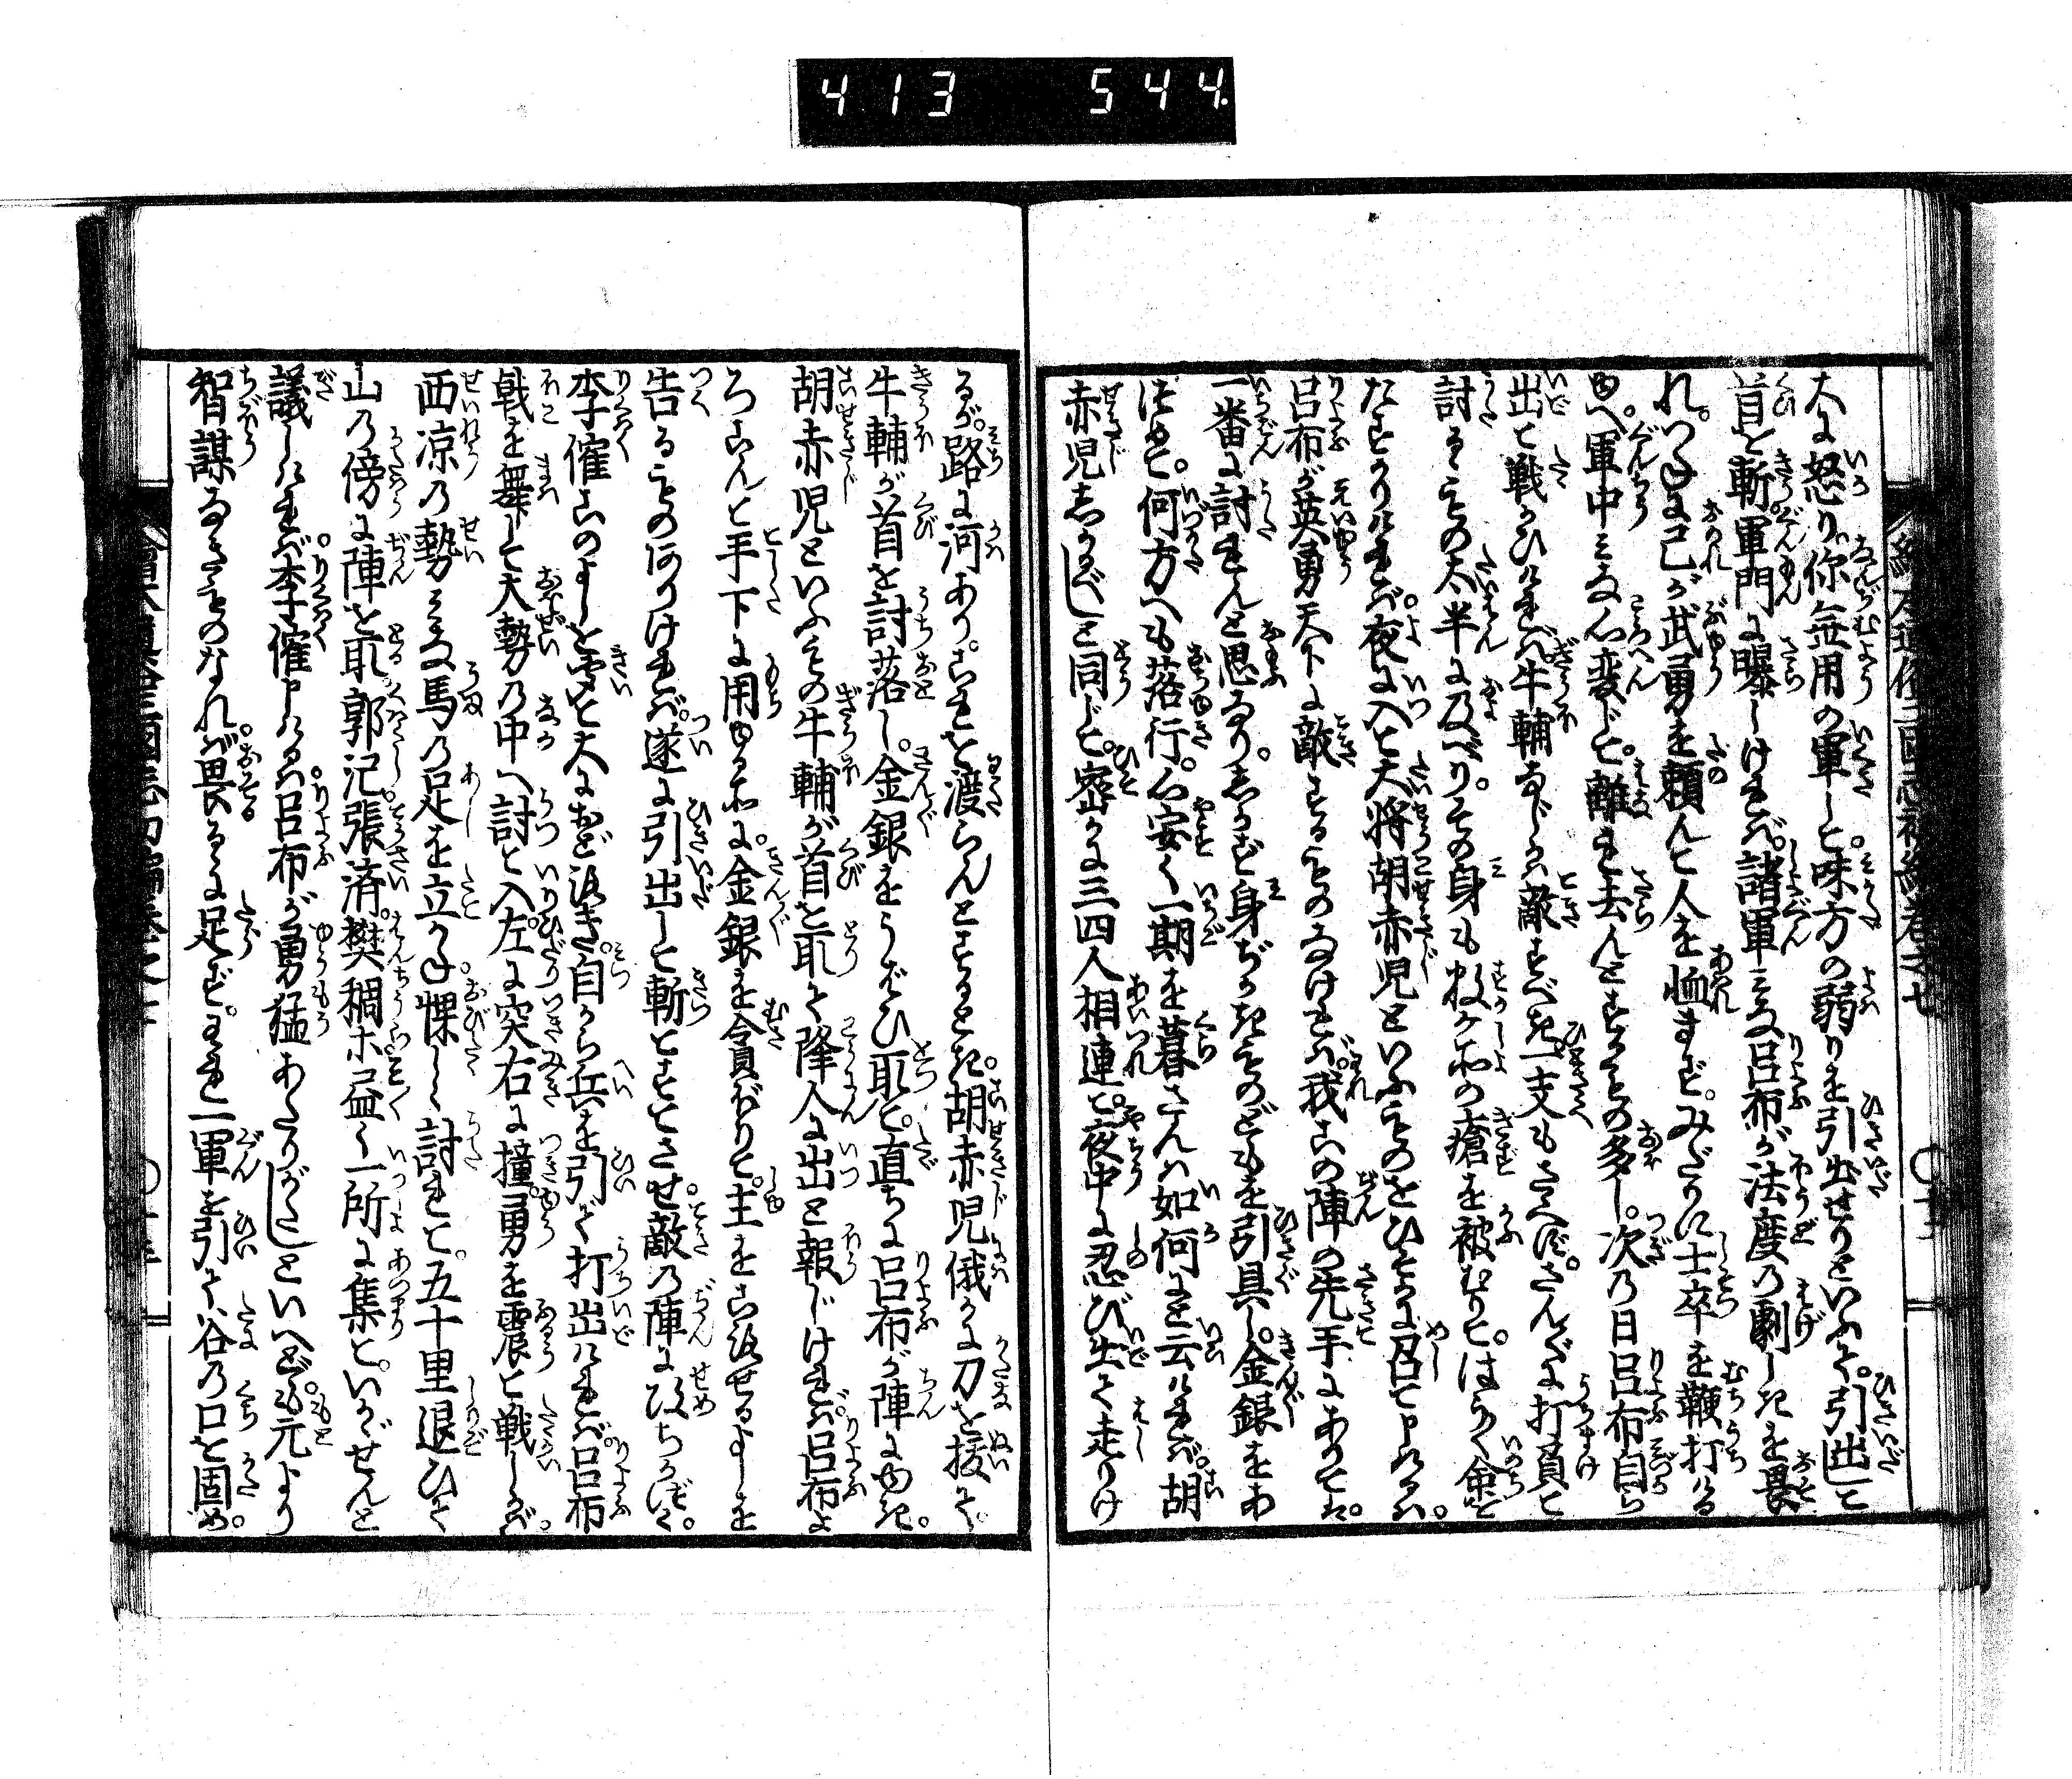 413 544.
大に怒り。你無用の軍して。味方の弱りを引出せりといふて。引出して
首を斬。軍門に曝しければ。諸軍みな呂布が法度の劇しきを畏
れ。つねに己が武勇を頼んで人を恤まず。みだりに士卒を鞭打ける
ゆへ。軍中みな心変じて。離れ去んとするもの多し。次の日呂布自ら
出て戦かひければ。牛輔なじかは敵すべき。一支もさゝへず。さんざんに打負て
討るゝもの太半に及べり。その身も数ケ所の瘡を被むりて。はうく命を
たすかりければ。夜に入て大将胡赤児といふものをひそかに召て申けるは。
呂布が英勇天下に敵するものなければ。我この陣の先手にありては。
一番に討れんと思ふなり。しかず身ぢかきものどもを引具し。金銀をあ
つめて。何方へも落行。心安く一期を暮さんは如何にと云ければ。胡
赤児しかるべしと同じて。密かに三四人相連て。夜中に忍び出て走りけ
るが。路に河あり。これを渡らんとするとき。胡赤児俄かに刀を援て。
牛輔が首を討落し。金銀をうばひ取て。直ちに呂布が陣にゆき。
胡赤児といふもの牛輔が首を取て降人に出と報じければ。呂布よ
ろこんで手下に用ゆる所に。金銀を貪ぼりて。主をころせるよしを
告るものありければ。遂に引出して斬てすてさせ。敵の陣に攻ちかづく。
李傕このよしを聞て大におどろき。自から兵を引て打出ければ。呂布
戟を舞して大勢の中へ討て入。左に突右に撞。勇を震て戦しが。
西凉の勢みな馬の足を立かね。慌しく討れて。五十里退ひて
山の傍に陣を取。郭汜張済。樊稠ホ益々一所に集て。いかゞせんと
議しければ。李傕申けるは。呂布が勇猛あたりがたしといへども。元より
智謀なきものなれば。畏るゝに足ず。われ一軍を引て。谷の口を固め。